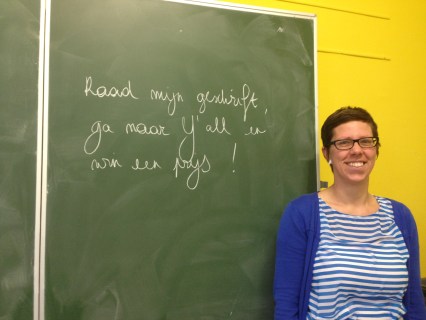 Raad mijn geschrift,
ga naar Y'all en
win een prijs !